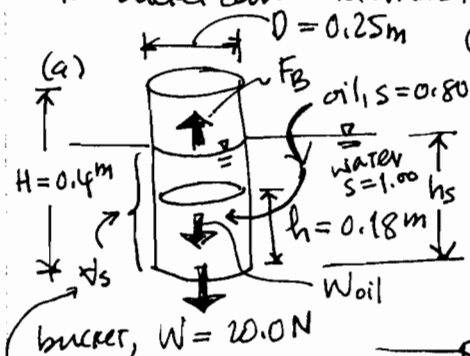 D = 0.25m
(a)
F_B
oil, s = 0.80
H = 0.4m
water
s = 1.00
h_s
h = 0.18m
∀s
W_oil
bucket, W = 20.0N